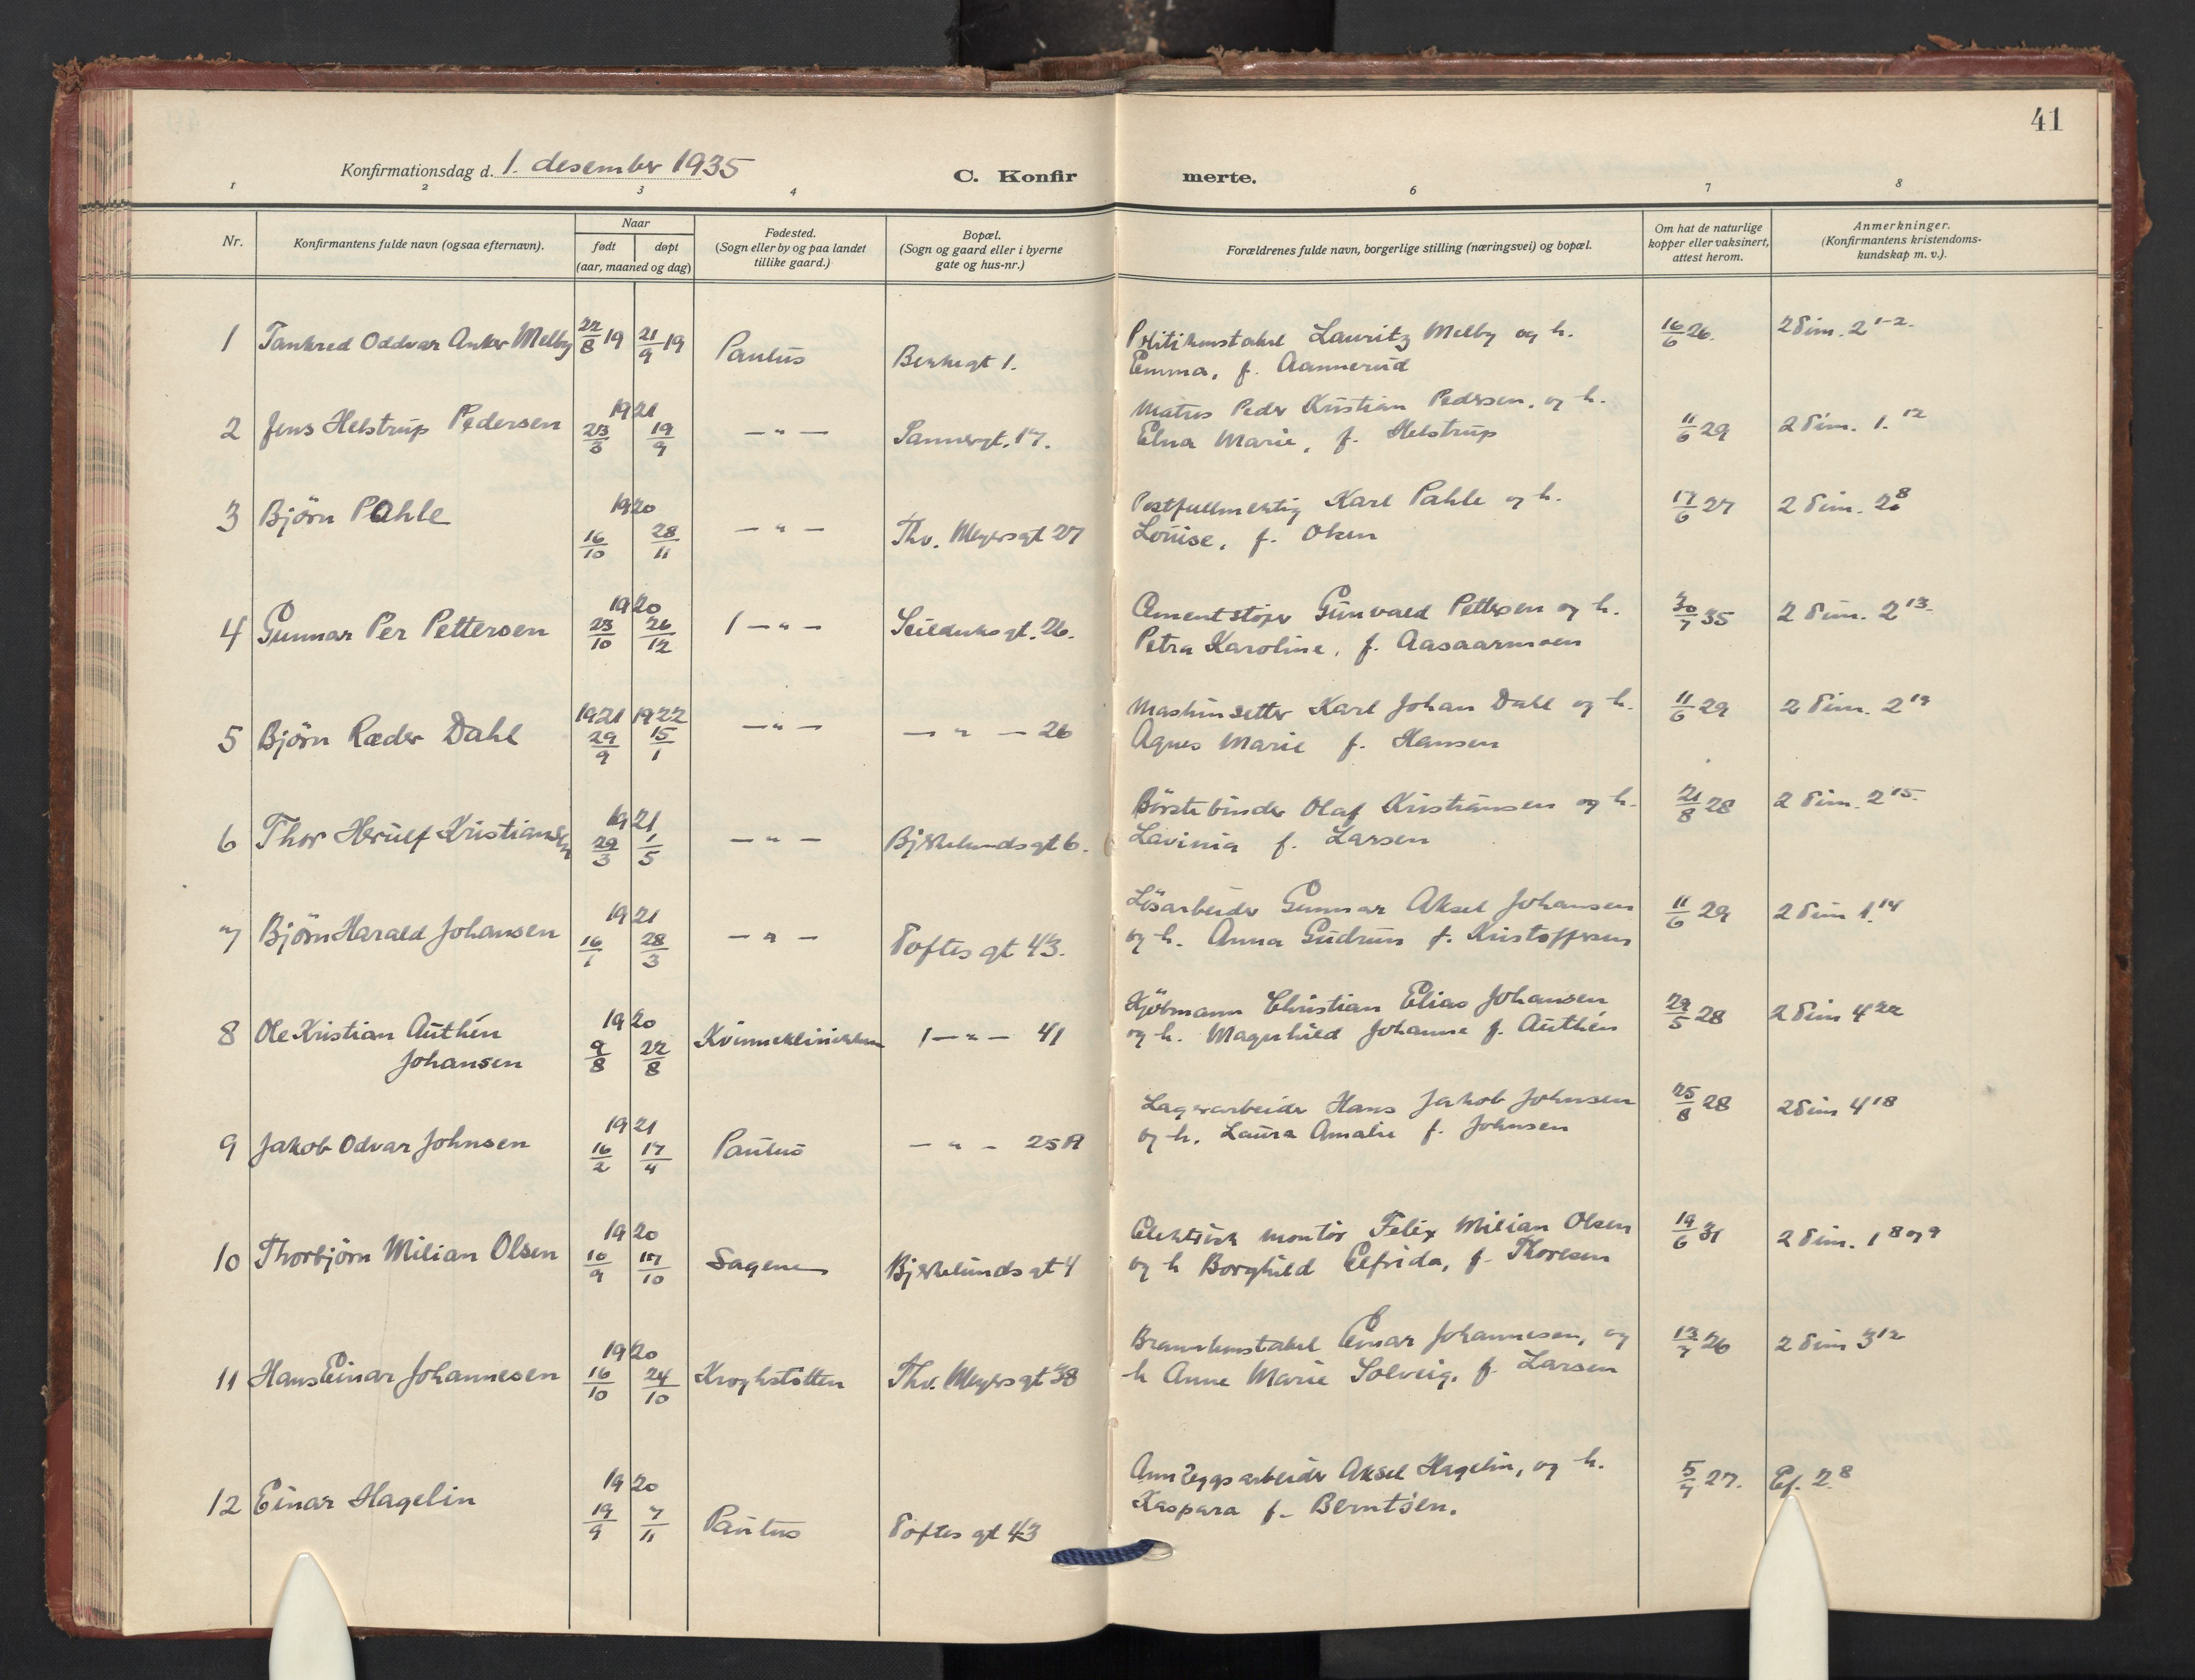 41
Konfirmationsdag d. 1. desember 1935
C. Konfirmerte.
1 2 3 4 6 7 8
Nr.
Konfirmantens fulde navn (ogsaa efternavn).
Naar
født døpt
(aar, maaned og dag)
Fødested.
(Sogn eller by og paa landet
tillike gaard.)
Bopæl.
(Sogn og gaard eller i byerne
gate og hus-nr.)
Forældrenes fulde navn, borgerlige stilling (næringsvei) og bopæl.
Om hat de naturlige
kopper eller vaksinert,
attest herom.
Anmerkninger.
(Konfirmantens kristendoms-
kundskap m. v.).
1 Tankred Oddvar Anker Melby 22/8 19 21/9 19 Paulus Berkegt 1. Politikonstabel Lauritz Melby og h. 16/6 26. 2 Tim. 2 1-2.
Emma, f. Aannerud
2 Jens Helstrup Pedersen 1921 23/3 19/9 —"— Sannergt. 17. Matros Peder Kristian Pedersen, og h. 11/6 29 2 Tim. 1. 12
Elna Marie, f. Helstrup
3 Björn Pahle 1920 16/10 28/11 —"— Thv. Meyersgt 27 Postfullmektig Karl Pahle og h. 17/6 27 2 Tim. 2. 8
Louise, f. Olsen
4 Gunnar Per Pettersen 1920 23/10 26/12 1 —"— Seilduksgt. 26. Cementstøper Gunvald Pettersen og h. 30/7 35 2 Tim. 2 13.
Petra Karoline, f. Aasaarmoen
5 Björn Ræder Dahl 1921 29/9 1922 15/1 —"— —"— 26 Maskinsetter Karl Johan Dahl og h. 11/6 29 2 Tim. 2 19
Agnes Marie f. Hansen
6 Thor Herulf Kristiansen 1921 29/3 1/5 —"— Bjerkelundsgt 6. Börstebinder Olaf Kristiansen og h. 21/8 28 2 Tim. 2 15.
Lavinia f. Larsen
7 Björn Harald Johansen 1921 16/1 28/3 —"— Toftes gt 43. Lösarbeider Gunnar Aksel Johansen 11/6 29 2 Tim 1. 14
og h. Anna Gudrun f. Kristoffersen
8 Ole Kristian Authén 1920 9/8 22/8 Kvinneklinikken 1 —"— 41 Kjöbmann Christian Elias Johansen 29/5 28 2 Tim 4 22
Johansen og h. Magnhild Johanne f. Authén
9 Jakob Odvar Johnsen 1921 16/2 17/4 Paulus —"— 25 A Lagerarbeider Hans Jakob Johnsen 25/8 28 2 Tim 4 18
og h. Laura Amalie f. Johnsen
10 Thorbjörn Milian Olsen 1920 10/9 17/10 Sagene Bjerkelunds gt 4 Elektrisk montör Felix Milian Olsen 19/6 31 2 Tim. 1 8 og 9
og h Borghild Elfrida, f. Thoresen
11 Hans Einar Johannesen 1920 16/10 24/10 Kroghstötten Thv. Meyers gt 38 Brannkonstabel Einar Johannesen, og 13/7 26 2 Tim 3 12
h Anne Marie Solveig, f. Larsen
12 Einar Hagelin 1920 19/9 7/11 Paulus Toftes gt 43 Anleggsarbeider Aksel Hagelin, og h. 5/7 27. Ef. 2. 8
Kaspara f. Berntsen.